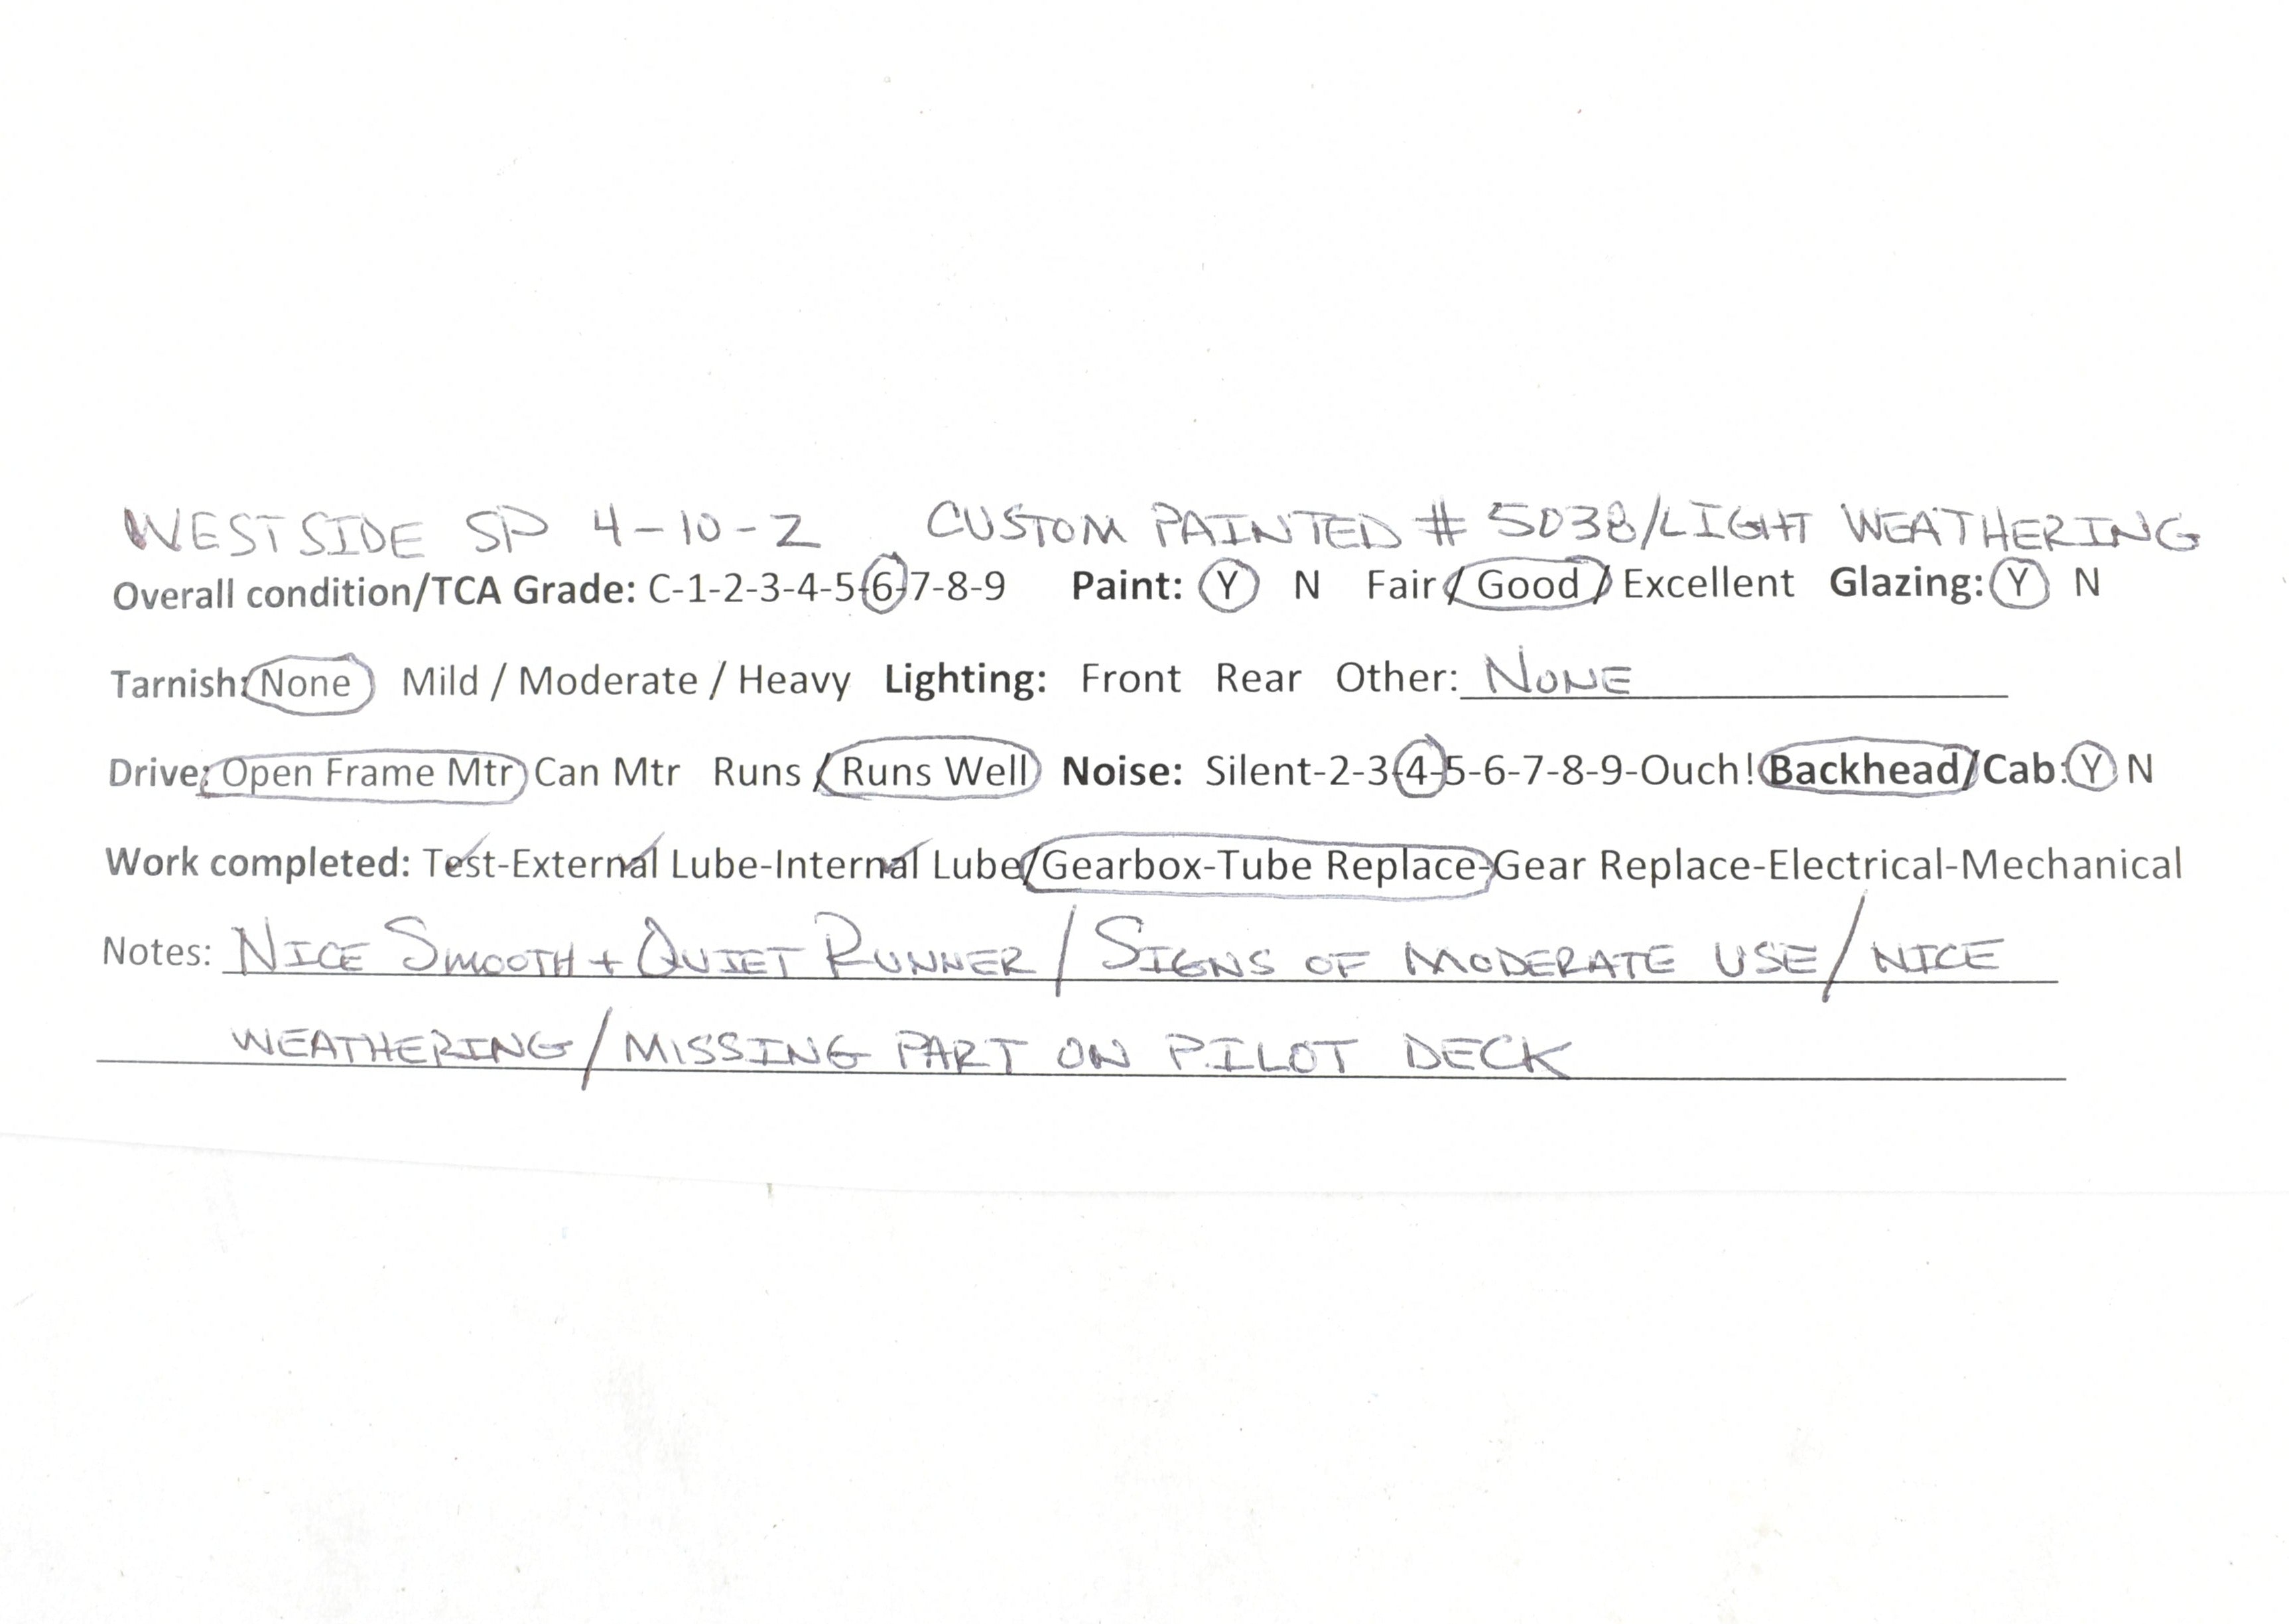 WESTSIDE SP 4-10-2 CUSTOM PAINTED # 5038/LIGHT WEATHERING
Overall condition/TCA Grade: C-1-2-3-4-5-6-7-8-9 Paint: Y N Fair / Good / Excellent Glazing: Y N
Tarnish: None Mild / Moderate / Heavy Lighting: Front Rear Other: NONE
Drive: Open Frame Mtr Can Mtr Runs / Runs Well Noise: Silent-2-3-4-5-6-7-8-9-Ouch! Backhead/Cab: Y N
Work completed: Test-External Lube-Internal Lube/Gearbox-Tube Replace-Gear Replace-Electrical-Mechanical
Notes: NICE SMOOTH + QUIET RUNNER / SIGNS OF MODERATE USE / NICE
WEATHERING / MISSING PART ON PILOT DECK